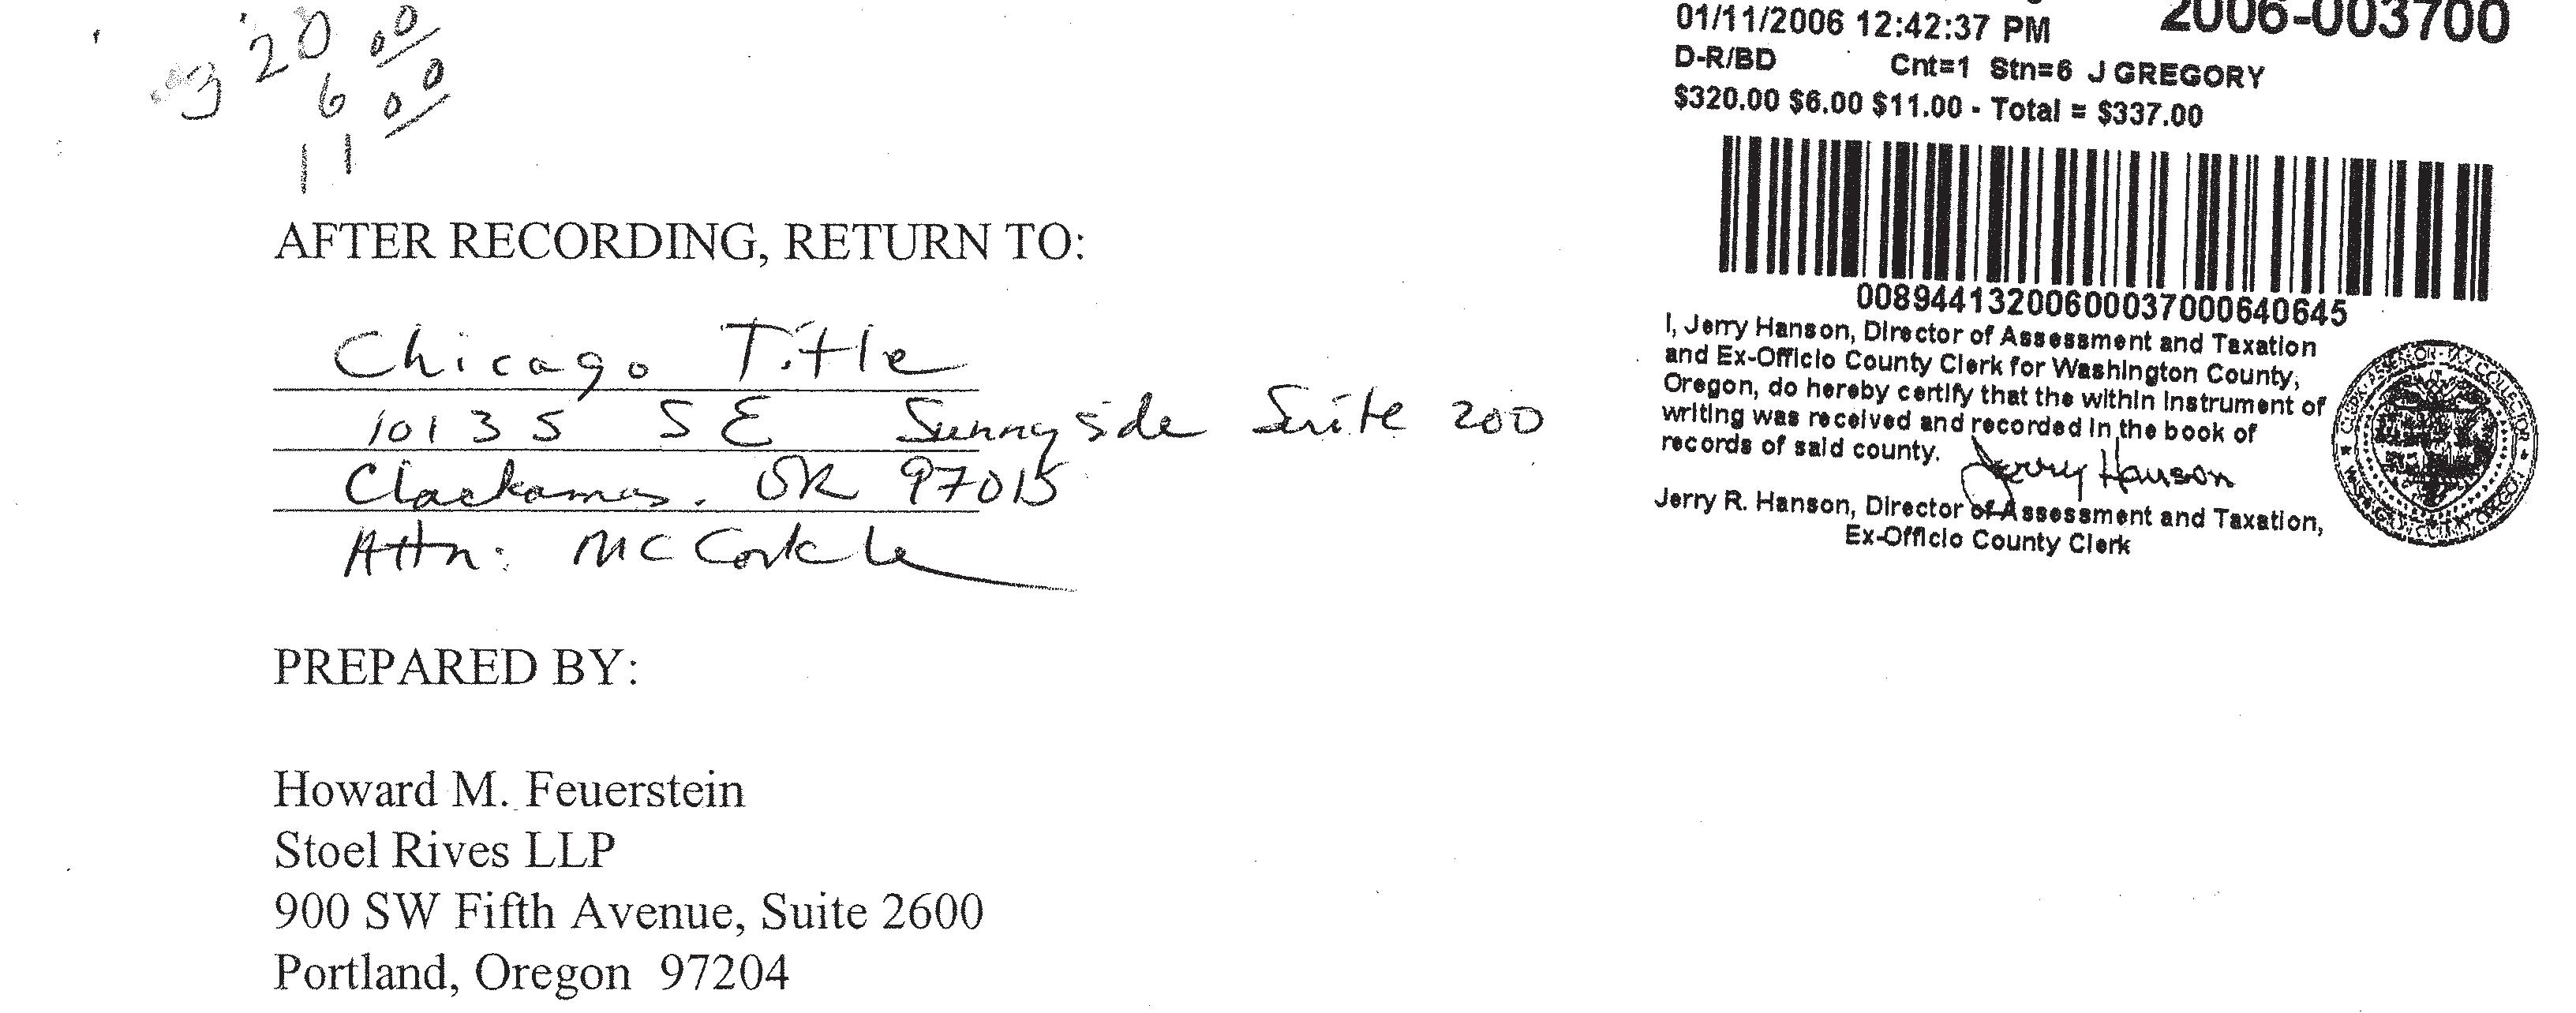 320 00
6 00
11
01/11/2006 12:42:37 PM 2006-003700
D-R/BD Cnt=1 Stn=6 J GREGORY
$320.00 $6.00 $11.00 - Total = $337.00
00894413200600037000640645
I, Jerry Hanson, Director of Assessment and Taxation
and Ex-Officio County Clerk for Washington County,
Oregon, do hereby certify that the within instrument of
writing was received and recorded in the book of
records of said county.
Jerry Hanson
Jerry R. Hanson, Director of Assessment and Taxation,
Ex-Officio County Clerk
AFTER RECORDING, RETURN TO:
Chicago Title
10135 SE Sunnyside Suite 200
Clackamas, OR 97015
Attn: McCorkle
PREPARED BY:
Howard M. Feuerstein
Stoel Rives LLP
900 SW Fifth Avenue, Suite 2600
Portland, Oregon 97204